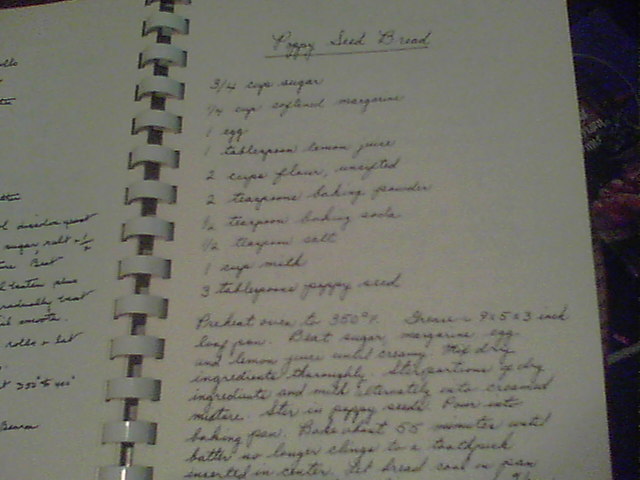 Poppy Seed Bread
3/4 cup sugar
1/4 cup softened margarine
1 egg
1 tablespoon lemon juice
2 cups flour, unsifted
2 teaspoons baking powder
1/2 teaspoon baking soda
1/2 teaspoon salt
1 cup milk
3 tablespoons poppy seed
Preheat oven to 350°F. Grease 9x5x3 inch
loaf pan. Beat sugar, margarine, egg
and lemon juice until creamy. Mix dry
ingredients thoroughly. Stir portions of dry
ingredients and milk alternately into creamed
mixture. Stir in poppy seeds. Pour into
baking pan. Bake about 55 minutes until
batter no longer clings to a toothpick
inserted in center. Let bread cool in pan
dissolve yeast
sugar, salt + 1/2
Beat
plus
gradually beat
smooth.
rolls + let